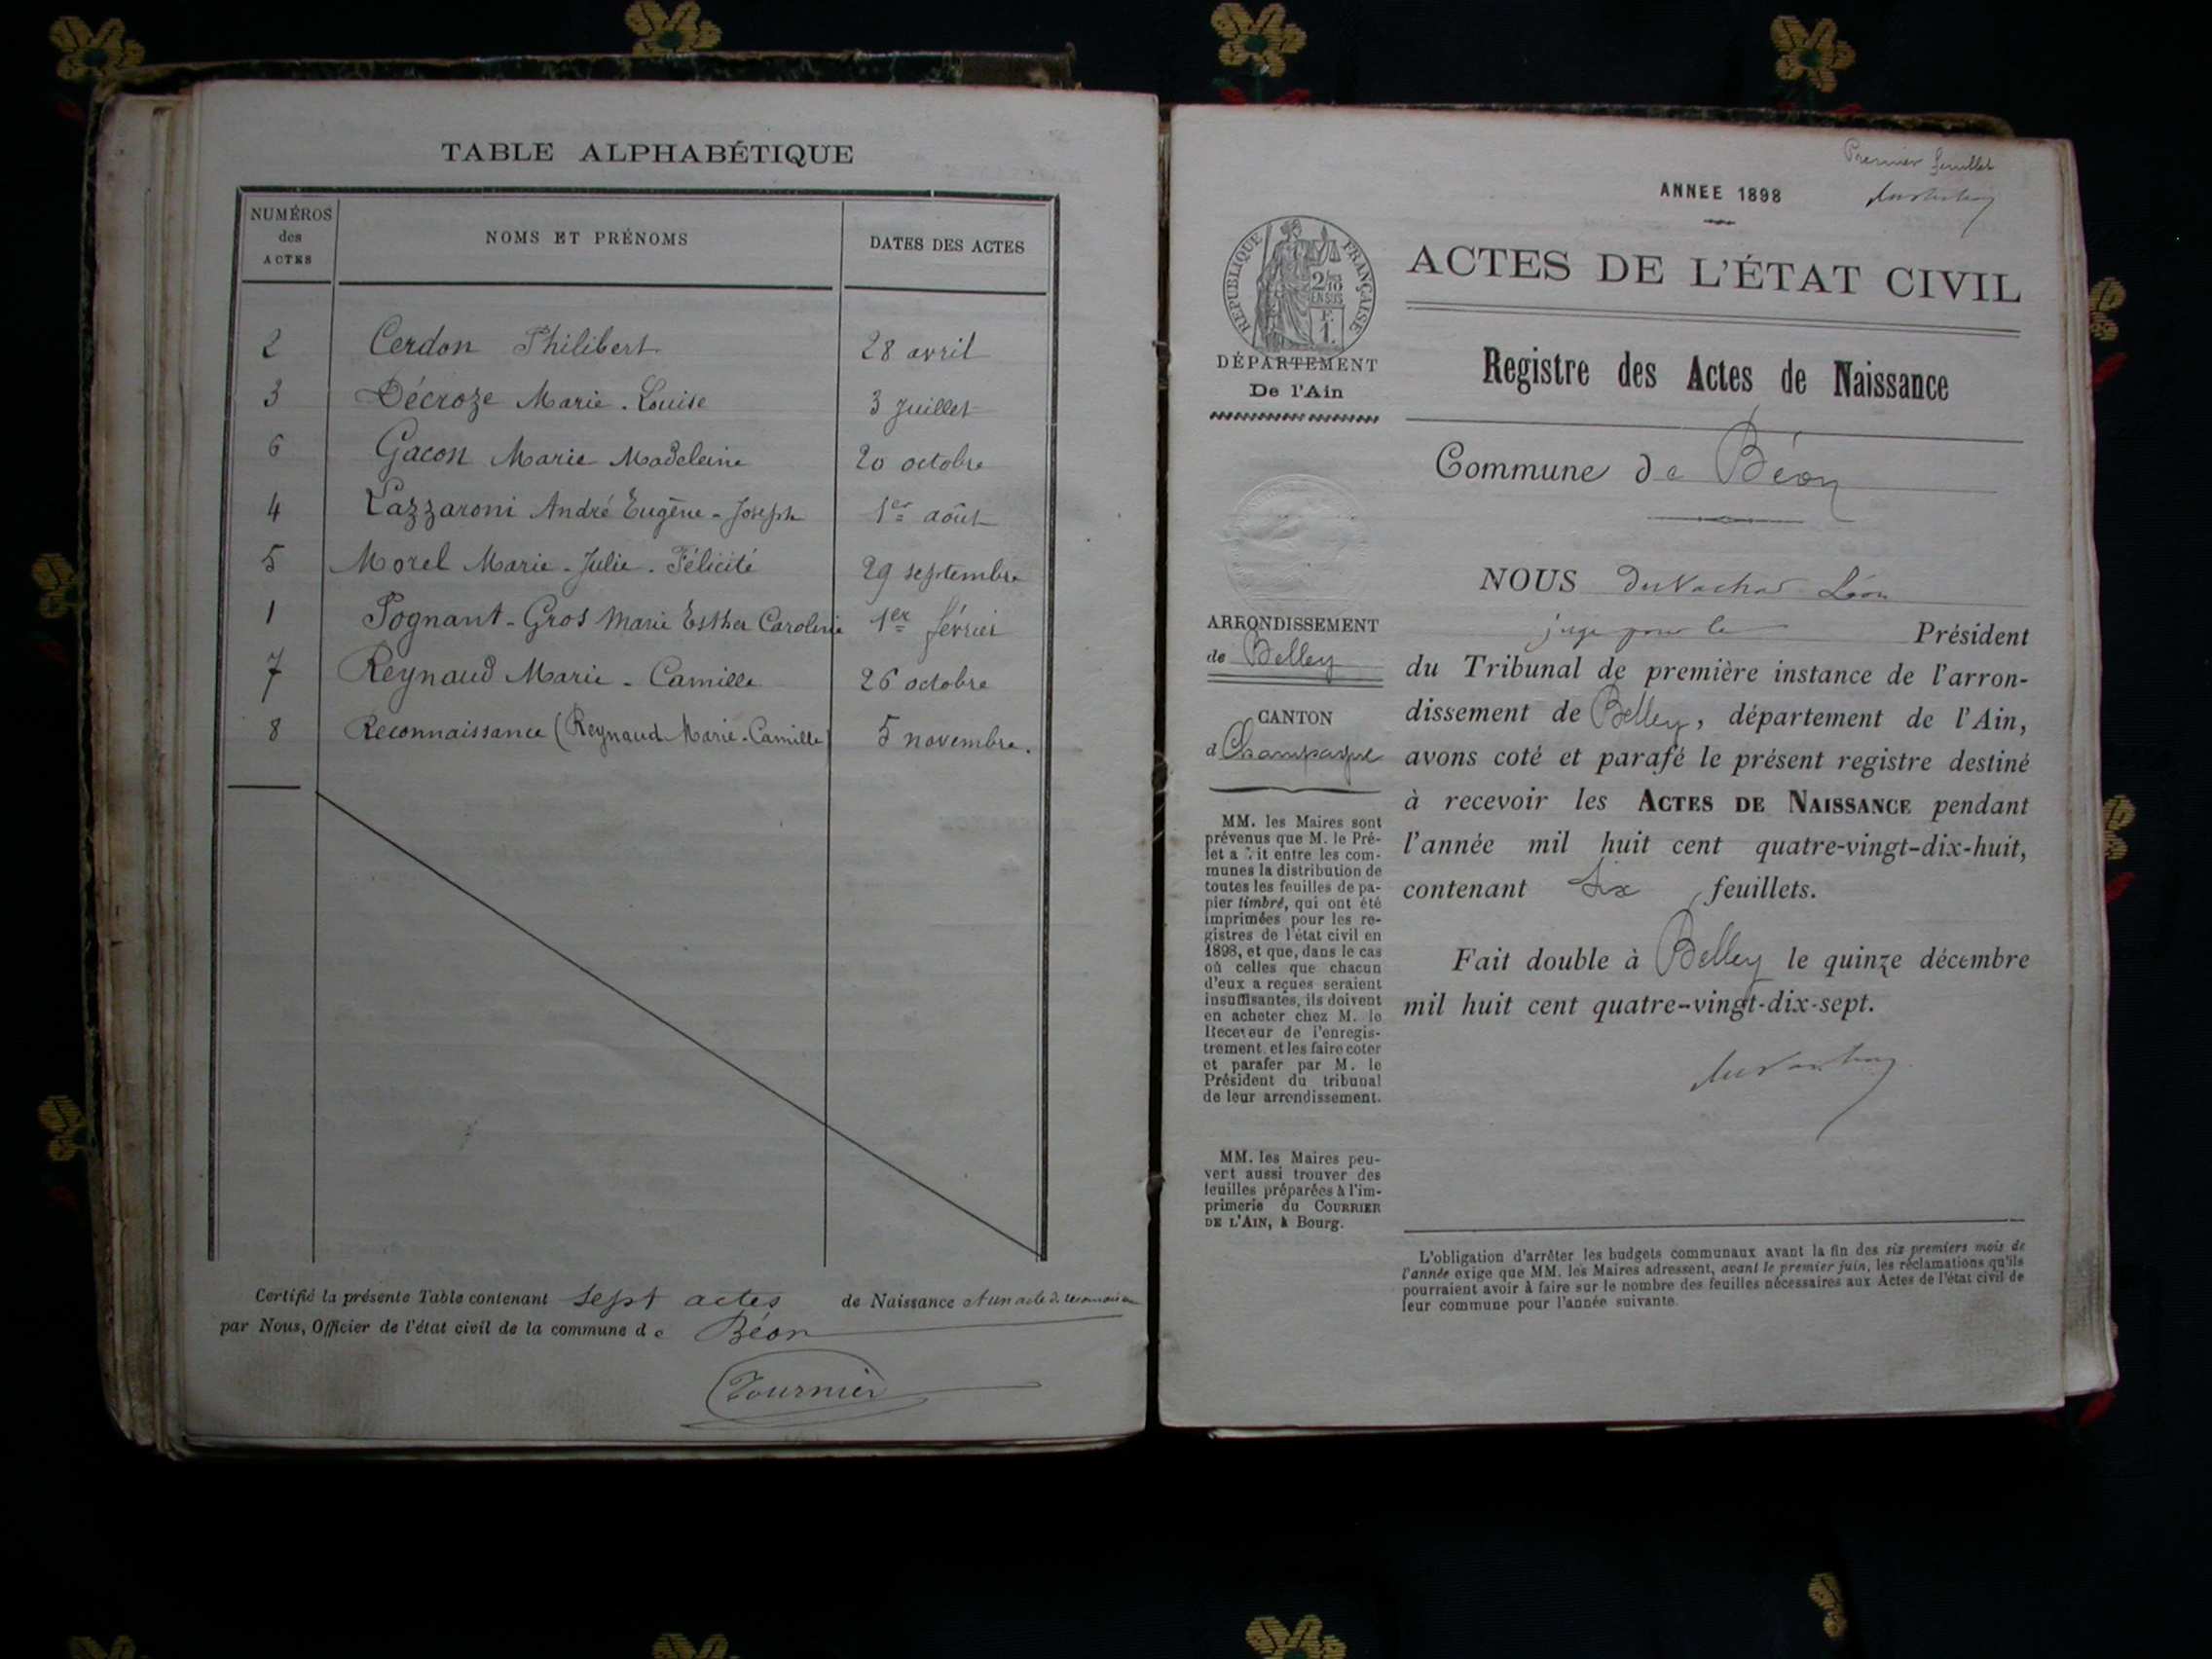 TABLE ALPHABÉTIQUE
NUMÉROS des ACTES
NOMS ET PRÉNOMS
DATES DES ACTES
2 Cerdon Philibert 28 avril
3 Décroze Marie-Louise 3 Juillet
6 Gacon Marie Madeleine 20 octobre
4 Lazzaroni André Eugène-Joseph 1er août
5 Morel Marie-Julie-Félicité 29 septembre
1 Pognant-Gros Marie Esther Caroline 1er février
7 Reynaud Marie-Camille 26 octobre
8 Reconnaissance (Reynaud Marie-Camille) 5 novembre.
Certifié la présente Table contenant sept actes de Naissance et un acte de
par Nous, Officier de l'état civil de la commune de Béon
Tournier
Premier feuillet
ANNEE 1898
REPUBLIQUE FRANÇAISE
2/10 EN SUS
F. 1.
ACTES DE L'ÉTAT CIVIL
DÉPARTEMENT
De l'Ain
Registre des Actes de Naissance
Commune de Béon
ARRONDISSEMENT
de Belley
CANTON
d Champagne
MM. les Maires sont
prévenus que M. le Pré-
fet a fait entre les com-
munes la distribution de
toutes les feuilles de pa-
pier timbré, qui ont été
imprimées pour les re-
gistres de l'état civil en
1898, et que, dans le cas
où celles que chacun
d'eux a reçues seraient
insuffisantes, ils doivent
en acheter chez M. le
Receveur de l'enregis-
trement et les faire coter
et parafer par M. le
Président du tribunal
de leur arrondissement.
MM. les Maires peu-
vent aussi trouver des
feuilles préparées à l'im-
primerie du COURRIER
DE L'AIN, à Bourg.
NOUS Léon
juge pour le Président
du Tribunal de première instance de l'arron-
dissement de Belley, département de l'Ain,
avons coté et parafé le présent registre destiné
à recevoir les ACTES DE NAISSANCE pendant
l'année mil huit cent quatre-vingt-dix-huit,
contenant six feuillets.
Fait double à Belley le quinze décembre
mil huit cent quatre-vingt-dix-sept.
L'obligation d'arrêter les budgets communaux avant la fin des six premiers mois de
l'année exige que MM. les Maires adressent, avant le premier juin, les réclamations qu'ils
pourraient avoir à faire sur le nombre des feuilles nécessaires aux Actes de l'état civil de
leur commune pour l'année suivante.